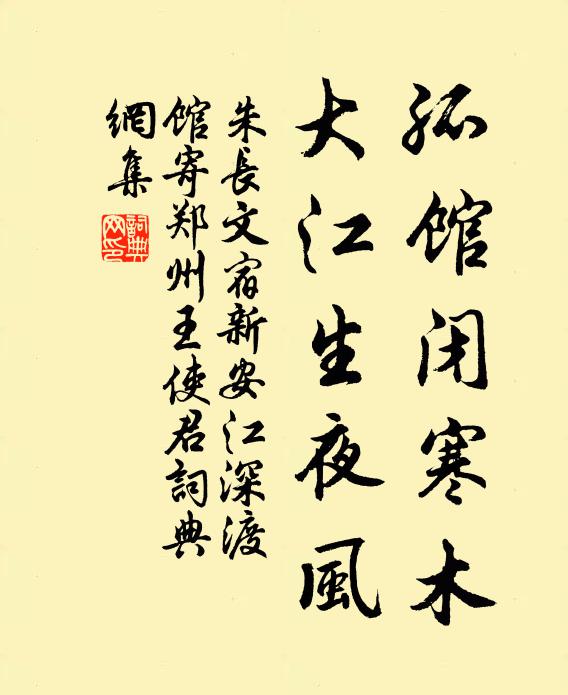 孤馆闭寒木
大江生夜風
朱長文宿新安江深渡
馆寄郑州王使君詞典
網集
詞典